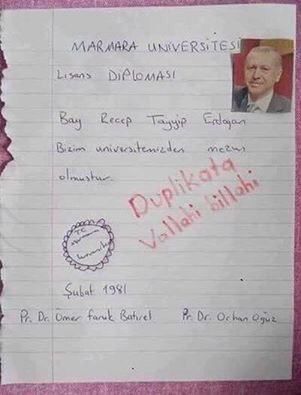 MARMARA UNIVERSITESI
Lisans DIPLOMASI
Bay Recep Tayyip Erdogan
Bizim universitemizden mezun
olmustur.
Duplikata
Vallahi billahi
T.C.
Şubat 1981
Pr. Dr. Ömer faruk Batırel Pr. Dr. Orhan Oğuz